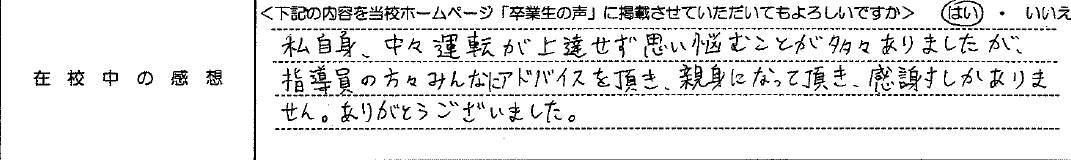 <下記の内容を当校ホームページ「卒業生の声」に掲載させていただいてもよろしいですか> はい ・ いいえ
在校中の感想
私自身、中々運転が上達せず思い悩むことが多々ありましたが、
指導員の方々みんなにアドバイスを頂き、親身になって頂き、感謝しかありま
せん。ありがとうございました。